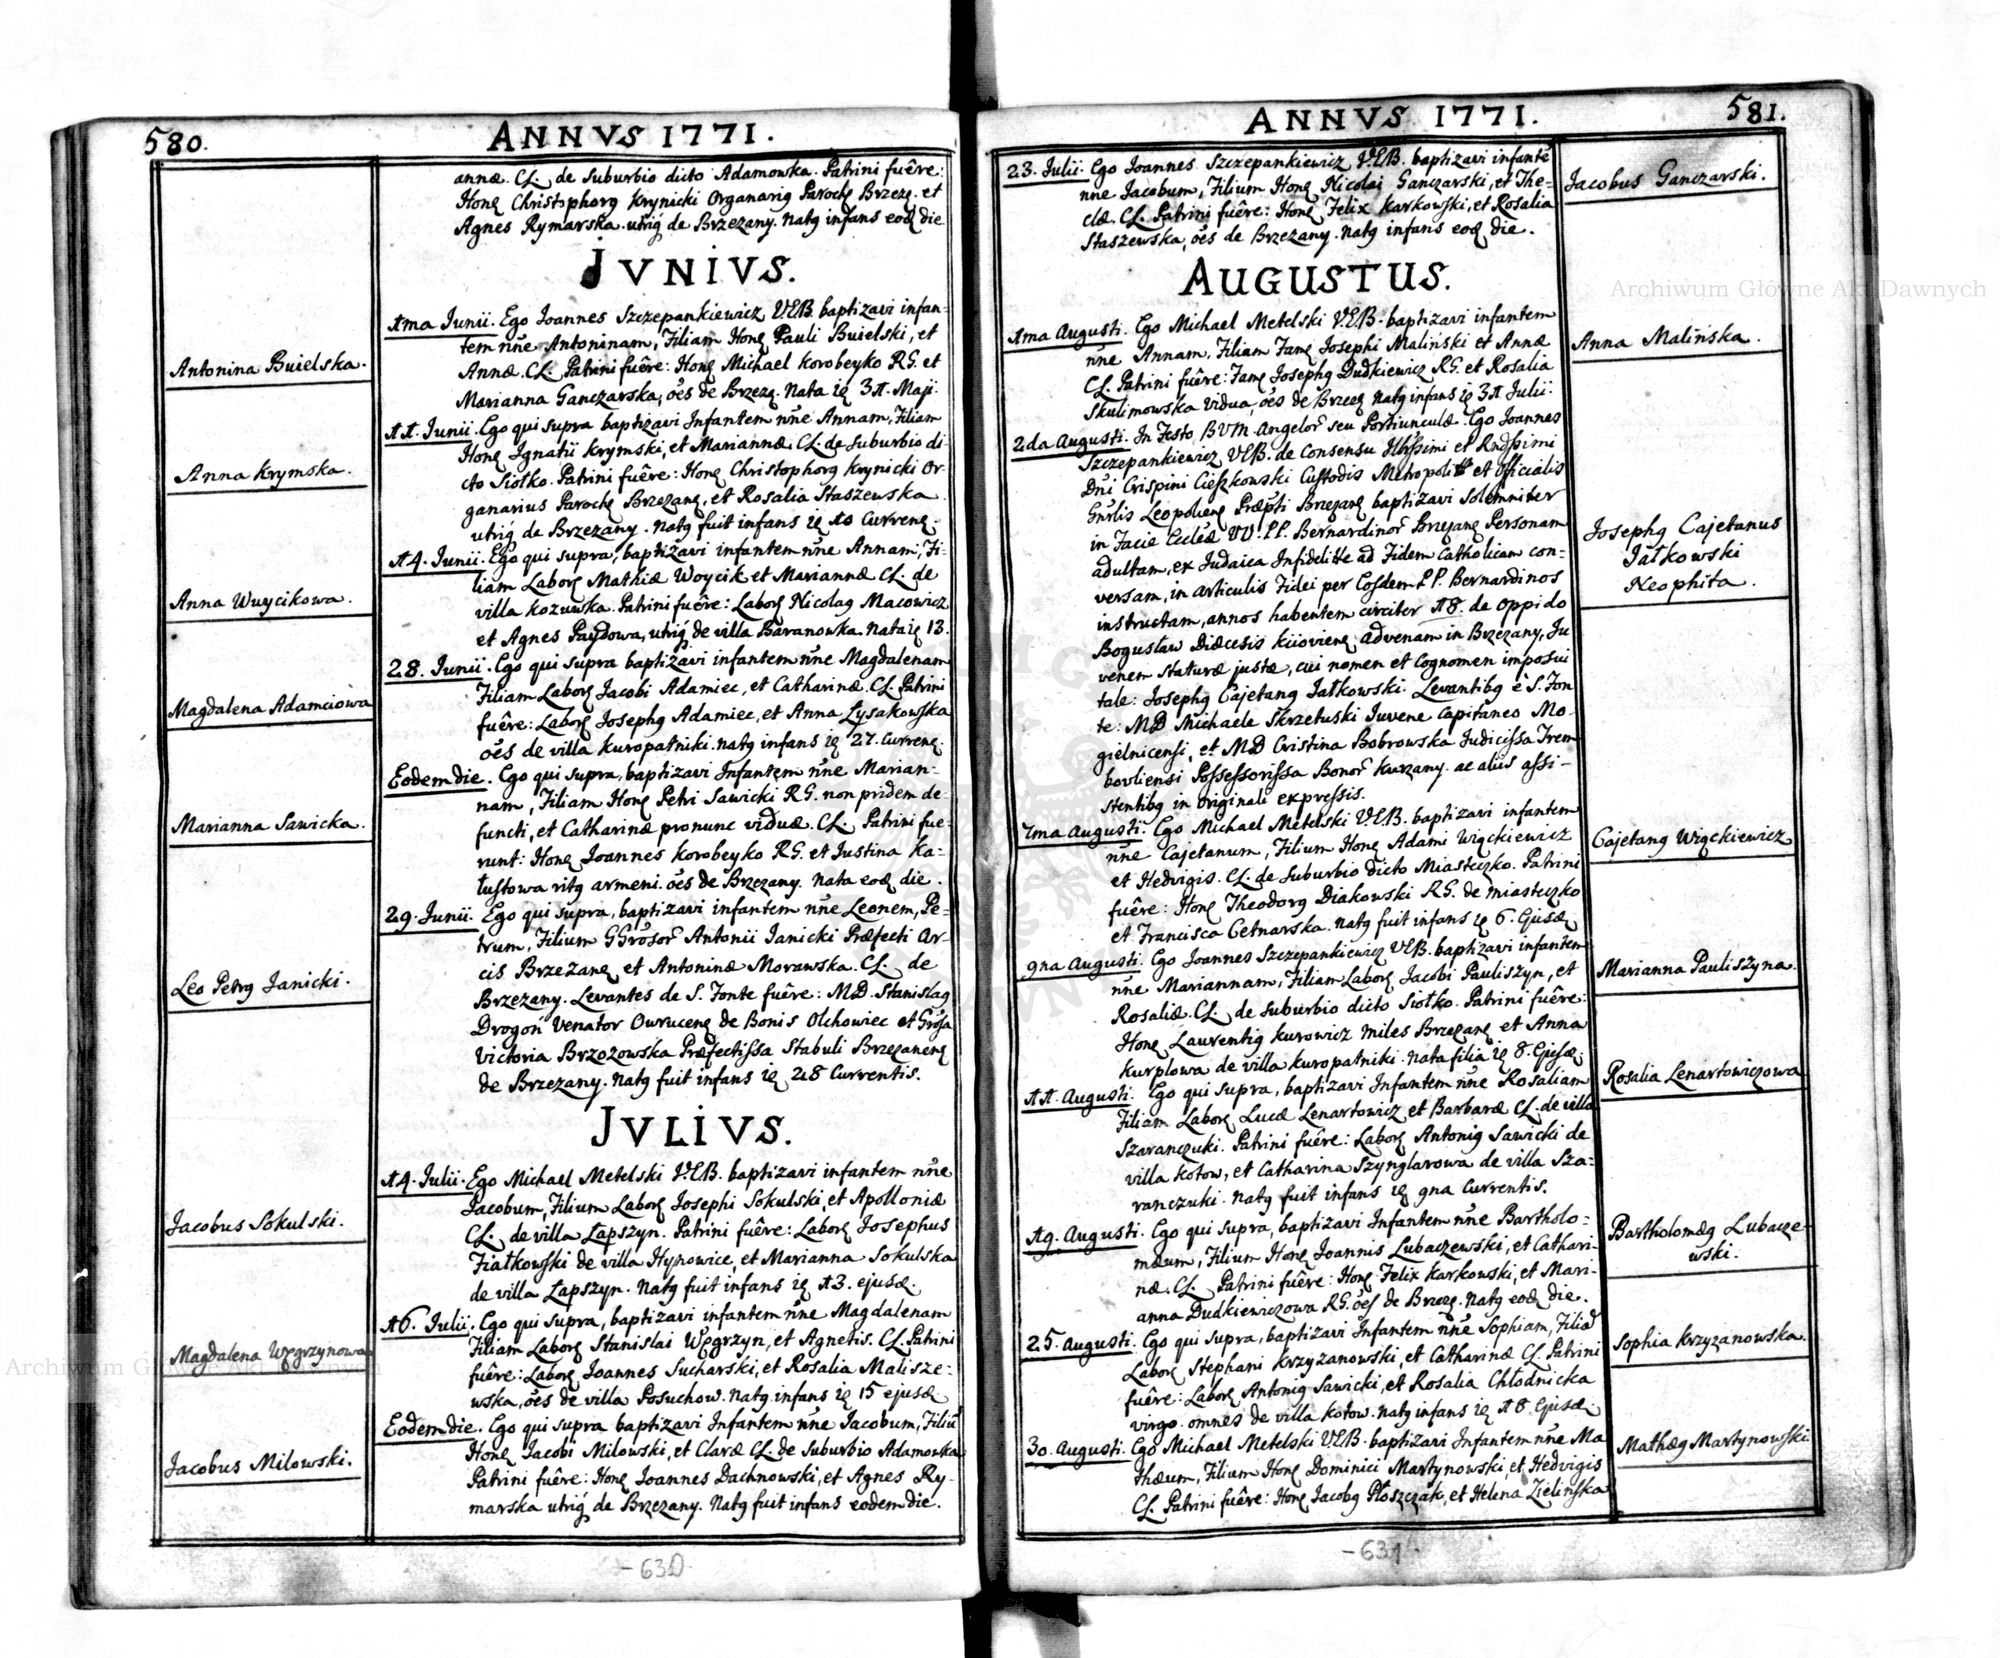 580.
ANNVS 1771.
annæ. CL. de Suburbio dicto Adamowska. Patrini fuêre:
Honꝫ Christophorꝫ Krynicki Organariꝫ Parochꝫ Brzezꝫ. et
Agnes Rymarska. utriꝫ de Brzezany. Natꝫ infans eod die.
JVNIVS.
1ma Junii. Ego Joannes Szczepankiewicz V.E.B. baptizavi infan-
Antonina Buielska.
tem nñe Antoninam, Filiam Honꝫ Pauli Buielski, et
Annæ. CL. Patrini fuêre: Honꝫ Michael Korobeyko RG. et
Marianna Ganczarska, oẽs de Brzezꝫ. Nata iꝫ 31. Maji.
11. Junii. Ego qui supra baptizavi Infantem nñe Annam, Filiam
Anna Krymska.
Honꝫ Ignatii Krymski, et Mariannæ CL. de Suburbio di
cto Siołko. Patrini fuêre: Honꝫ Christophorꝫ Krynicki Or-
ganarius Parochꝫ Brzezanꝫ, et Rosalia Staszewska
utriꝫ de Brzezany. Natꝫ fuit infans iꝫ 10 Currenꝫ.
14. Junii. Ego qui supra, baptizavi infantem nñe Annam, Fi-
Anna Wuycikowa.
liam Laborꝫ Mathiæ Woycik et Mariannæ CL. de
villa Kozuwka. Patrini fuêre: Laborꝫ Nicolaꝫ Macowicz
et Agnes Paydowa, utriꝫ de villa Baranowka. Nata iꝫ 13.
28. Junii. Ego qui supra baptizavi infantem nñe Magdalenam
Magdalena Adamciowa
Filiam Laborꝫ Jacobi Adamiec, et Catharinæ. CL. Patrini
fuêre: Laborꝫ Josephꝫ Adamiec, et Anna Łysakowska
oẽs de villa Kuropatniki. natꝫ infans iꝫ 27. Currenꝫ.
Eodem die. Ego qui supra, baptizavi Infantem nñe Marian-
Marianna Sawicka.
nam, Filiam Honꝫ Petri Sawicki RG. non pridem de-
functi, et Catharinæ pronunc viduæ. CL. Patrini fue-
runt: Honꝫ Joannes Korobeyko RG. et Justina Ka-
łustowa ritꝫ armeni. oẽs de Brzezany. Nata eod die.
29. Junii. Ego qui supra, baptizavi infantem nñe Leonem, Pe-
Leo Petrꝫ Janicki.
trum, Filium GGrosor Antonii Janicki Præfecti Ar-
cis Brzezanꝫ et Antoninæ Morawska. CL. de
Brzezany. Levantes de S. Fonte fuêre: MD. Stanislaꝫ
Drogoń Venator Owrucenꝫ de Bonis Olchowiec et Grosa
Victoria Brzozowska Præfectissa Stabuli Brzezanenꝫ
de Brzezany. Natꝫ fuit infans iꝫ 28 Currentis.
JVLIVS.
14. Julii. Ego Michael Metelski V.E.B. baptizavi infantem nñe
Jacobus Sokulski.
Jacobum, Filium Laborꝫ Josephi Sokulski, et Apolloniæ
CL. de villa Łapszyn. Patrini fuêre: Laborꝫ Josephus
Fiałkowski de villa Hynowice, et Marianna Sokulska
de villa Łapszyn. Natꝫ fuit infans iꝫ 13. ejusd.
16. Julii. Ego qui supra, baptizavi infantem nñe Magdalenam
Magdalena Węgrzynowa
Filiam Laborꝫ Stanislai Węgrzyn, et Agnetis. CL. Patrini
fuêre: Laborꝫ Joannes Sucharski, et Rosalia Malisze-
wska, oẽs de villa Posuchow. Natꝫ infans iꝫ 15 ejusd
Eodem die. Ego qui supra baptizavi Infantem nñe Jacobum, Filiũ
Jacobus Milowski.
Honꝫ Jacobi Milowski, et Claræ CL. de Suburbio Adamowka
Patrini fuêre: Honꝫ Joannes Dachnowski, et Agnes Ry-
marska utriꝫ de Brzezany. Natꝫ fuit infans eodem die.
-630
581.
ANNVS 1771.
23. Julii. Ego Joannes Szczepankiewicz V.E.B. baptizavi infantẽ
Jacobus Ganczarski.
nñe Jacobum, Filium Honꝫ Nicolai Ganczarski, et The-
clæ. CL. Patrini fuêre: Honꝫ Felix Karkowski, et Rosalia
Staszewska, oẽs de Brzezany. Natꝫ infans eod die.
AUGUSTUS.
1ma Augusti. Ego Michael Metelski V.E.B. baptizavi infantem
Anna Malińska.
nñe Annam, Filiam Famꝫ Josephi Maliński et Annæ
CL. Patrini fuêre: Famꝫ Josephꝫ Dudkiewicz RG. et Rosalia
Skulimowska Vidua, oẽs de Brzezꝫ Natꝫ infans iꝫ 31 Julii.
2da Augusti. In Festo BVM. Angelor seu Portiunculæ. Ego Joannes
Szczepankiewicz V.E.B. de Consensu Illssimi et Rndssimi
Dñi Crispini Cieszkowski Custodis Metropolitt et Officialis
Gnrlis Leopolienꝫ Præpti Brzezanꝫ baptizavi Solemniter
in Facie Eccleæ VV. PP. Bernardinor Brzezanꝫ Personam
Josephꝫ Cajetanus
Jałkowski
Neophita.
adultam, ex Judaica Infidelitte ad Fidem Catholicam con-
versam, in articulis Fidei per Eosdem P.P. Bernardinos
instructam, annos habentem circiter 18. de Oppido
Bogusław Diæcesis Kiiovienꝫ advenam in Brzezany, Ju
venem Staturæ justæ, cui nomen et Cognomen imposui
tale: Josephꝫ Cajetanꝫ Jałkowski. Levantibꝫ e S. Fon
te: MD Michaele Skrzetuski Juvene Capitaneo Mo-
gielnicensi, et MD Cristina Bobrowska Judicissa Trem
bovliensi Possessorissa Bonor Kurzany. ac aliis assi-
stentibꝫ in Originali expressis.
7ma Augusti. Ego Michael Metelski V.E.B. baptizavi infantem
Cajetanꝫ Więckiewicz
nñe Cajetanum, Filium Honꝫ Adami Więckiewicz
et Hedvigis. CL. de Suburbio dicto Miasteczko. Patrini
fuêre: Honꝫ Theodorꝫ Diakowski RG. de miasteczko
et Francisca Cetnarska. natꝫ fuit infans iꝫ 6. Ejusd
9na Augusti. Ego Joannes Szczepankiewicz V.E.B. baptizavi infantem
Marianna Pauliszyna.
nñe Mariannam, Filiam Laborꝫ Jacobi Pauliszyn, et
Rosaliæ. CL. de Suburbio dicto Siołko. Patrini fuêre:
Honꝫ Laurentiꝫ Kurowicz miles Brzezanꝫ et Anna
Kurplowa de villa Kuropatniki. Nata filia iꝫ 8. Ejusd.
11. Augusti. Ego qui supra, baptizavi Infantem nñe Rosaliam
Rosalia Lenartowiczowa
Filiam Laborꝫ Lucæ Lenartowicz et Barbaræ CL. de villa
Szaranczuki. Patrini fuêre: Laborꝫ Antoniꝫ Sawicki de
villa Kotow, et Catharina Szynglarowa de villa Sza-
ranczuki. Natꝫ fuit infans iꝫ 9na Currentis.
19. Augusti. Ego qui supra, baptizavi Infantem nñe Bartholo-
Bartholomæꝫ Lubacze-
wski.
mæum, Filium Honꝫ Joannis Lubaczewski, et Cathari-
næ. CL. Patrini fuêre: Honꝫ Felix Karkowski, et Mari-
anna Dudkiewiczowa RG. oẽs de Brzezꝫ. Natꝫ eod die.
25. Augusti. Ego qui supra, baptizavi Infantem nñe Sophiam, Filiã
Sophia Krzyzanowska.
Laborꝫ Stephani Krzyzanowski, et Catharinæ CL. Patrini
fuêre: Laborꝫ Antoniꝫ Sawicki, et Rosalia Chłodnicka
virgo. omnes de villa Kotow. natꝫ infans iꝫ 18 Ejusd.
30. Augusti. Ego Michael Metelski V.E.B. baptizavi Infantem nñe Ma
Mathæꝫ Martynowski.
thæum, Filium Honꝫ Dominici Martynowski, et Hedvigis
CL. Patrini fuêre: Honꝫ Jacobꝫ Płoszczak, et Helena Zielińska
-631
Archiwum Główne Akt Dawnych
Archiwum Główne Akt Dawnych